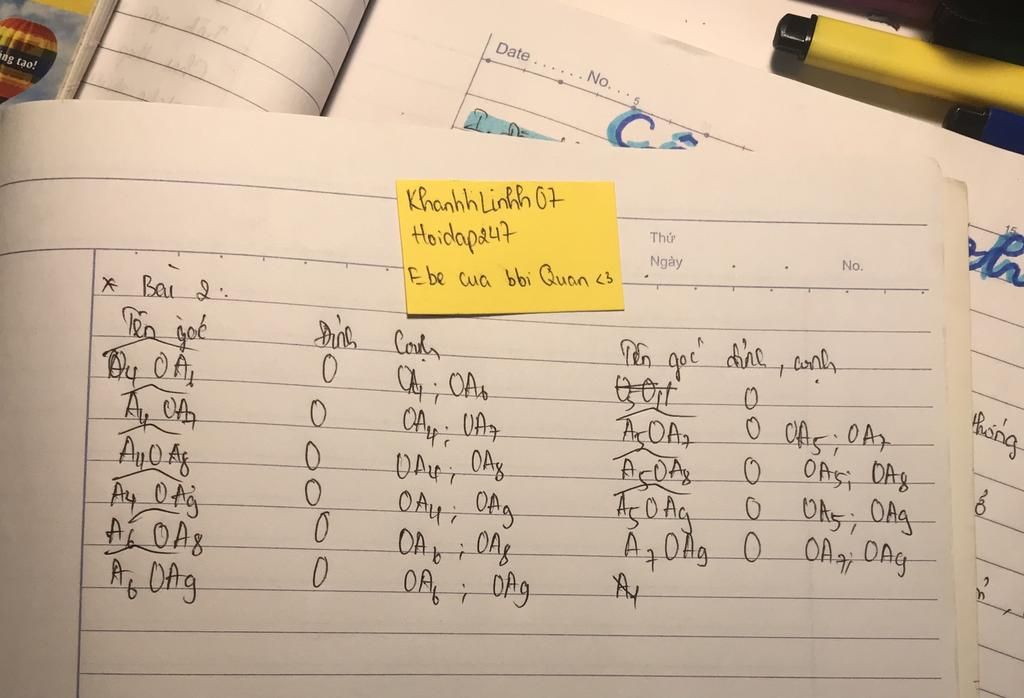 ng tạo!
Date ....... No. ...
5
KhanhhLinhh07
Hoidap247
Ebe cua bbi Quan <3
Thứ
Ngày
No.
15
* Bài 2:
Tên góc Đỉnh Cạnh
A4 OA6 O OA4; OA6
A4 OA7 O OA4; OA7
A4OA8 O OA4; OA8
A4 OA9 O OA4; OA9
A6 OA8 O OA6; OA8
A6 OA9 O OA6; OA9
Tên góc đỉnh, cạnh
O
A5OA7 O OA5; OA7
A5OA8 O OA5; OA8
A5OA9 O OA5; OA9
A7OA9 O OA7; OA9